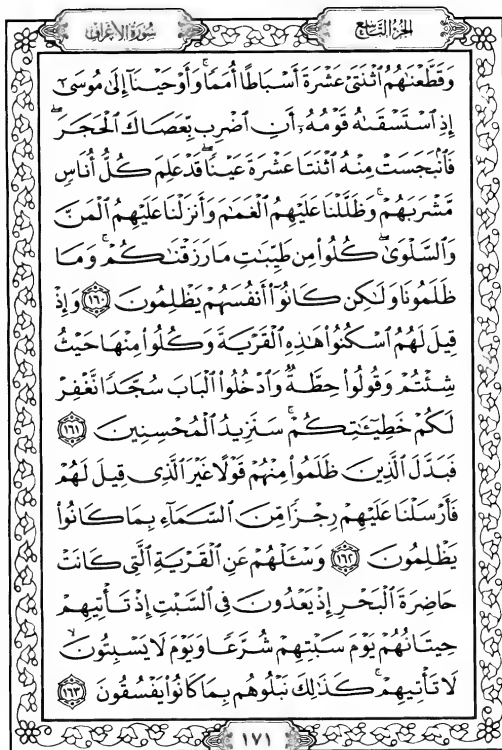 سُورَةُ الأَعْرَاف
الجُزْءُ التَّاسِع
وَقَطَّعْنَٰهُمُ ٱثْنَتَىْ عَشْرَةَ أَسْبَاطًا أُمَمًاۚ وَأَوْحَيْنَآ إِلَىٰ مُوسَىٰٓ
إِذِ ٱسْتَسْقَىٰهُ قَوْمُهُۥٓ أَنِ ٱضْرِب بِّعَصَاكَ ٱلْحَجَرَۖ
فَٱنۢبَجَسَتْ مِنْهُ ٱثْنَتَا عَشْرَةَ عَيْنًاۖ قَدْ عَلِمَ كُلُّ أُنَاسٍ
مَّشْرَبَهُمْۚ وَظَلَّلْنَا عَلَيْهِمُ ٱلْغَمَٰمَ وَأَنزَلْنَا عَلَيْهِمُ ٱلْمَنَّ
وَٱلسَّلْوَىٰۖ كُلُوا۟ مِن طَيِّبَٰتِ مَا رَزَقْنَٰكُمْۚ وَمَا
ظَلَمُونَا وَلَٰكِن كَانُوٓا۟ أَنفُسَهُمْ يَظْلِمُونَ ١٦٠ وَإِذْ
قِيلَ لَهُمُ ٱسْكُنُوا۟ هَٰذِهِ ٱلْقَرْيَةَ وَكُلُوا۟ مِنْهَا حَيْثُ
شِئْتُمْ وَقُولُوا۟ حِطَّةٌ وَٱدْخُلُوا۟ ٱلْبَابَ سُجَّدًا نَّغْفِرْ
لَكُمْ خَطِيٓـَٰٔتِكُمْۚ سَنَزِيدُ ٱلْمُحْسِنِينَ ١٦١
فَبَدَّلَ ٱلَّذِينَ ظَلَمُوا۟ مِنْهُمْ قَوْلًا غَيْرَ ٱلَّذِى قِيلَ لَهُمْ
فَأَرْسَلْنَا عَلَيْهِمْ رِجْزًا مِّنَ ٱلسَّمَآءِ بِمَا كَانُوا۟
يَظْلِمُونَ ١٦٢ وَسْـَٔلْهُمْ عَنِ ٱلْقَرْيَةِ ٱلَّتِى كَانَتْ
حَاضِرَةَ ٱلْبَحْرِ إِذْ يَعْدُونَ فِى ٱلسَّبْتِ إِذْ تَأْتِيهِمْ
حِيتَانُهُمْ يَوْمَ سَبْتِهِمْ شُرَّعًا وَيَوْمَ لَا يَسْبِتُونَۙ
لَا تَأْتِيهِمْۚ كَذَٰلِكَ نَبْلُوهُم بِمَا كَانُوا۟ يَفْسُقُونَ ١٦٣
١٧١